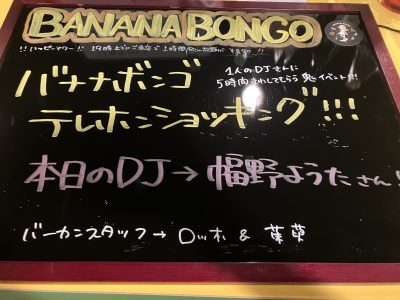 BANANA BONGO
!! ハッピーアワー !! 19時までのご来店で1時間
1人のDJさんに
5時間まわしてもらう鬼イベント!!
バナナボンゴ
テレホンショッキング!!!
本日のDJ→幅野ようたさん!!
バーカンスタッフ→ロッホ & 葉葉